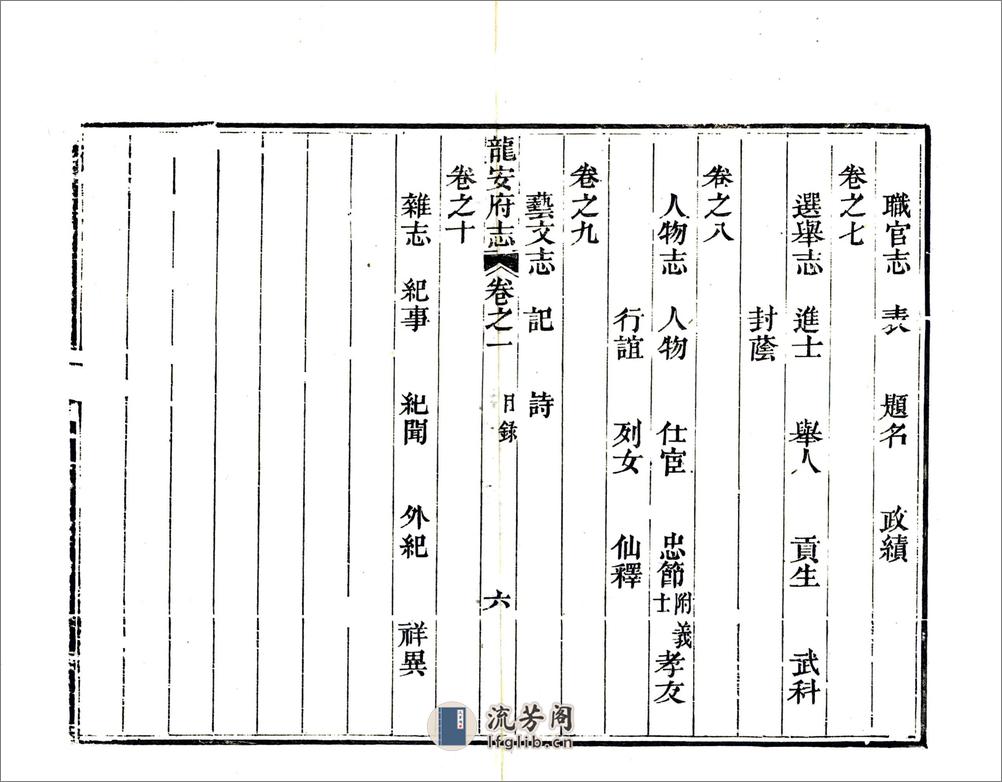 職官志 表 題名 政績
卷之七
選舉志 進士 舉人 貢生 武科
封蔭
卷之八
人物志 人物 仕宦 忠節附義士 孝友
行誼 列女 仙釋
卷之九
藝文志 記 詩
龍安府志 卷之一 目錄 六
卷之十
雜志 紀事 紀聞 外紀 祥異
流芳阁
lfglib.cn